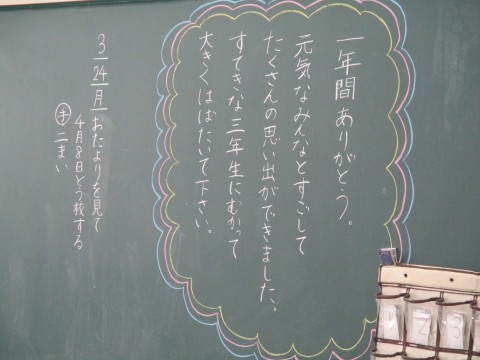 一年間ありがとう。
元気なみんなとすごして
たくさんの思い出ができました。
すてきな三年生にむかって
大きくはばたいて下さい。
3|24|月|おたよりを見て
4月8日とう校する
㋠二まい
2
3